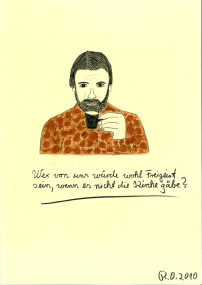 Wer von uns würde wohl Freigeist
sein, wenn es nicht die Kirche gäbe?
R.D.2010